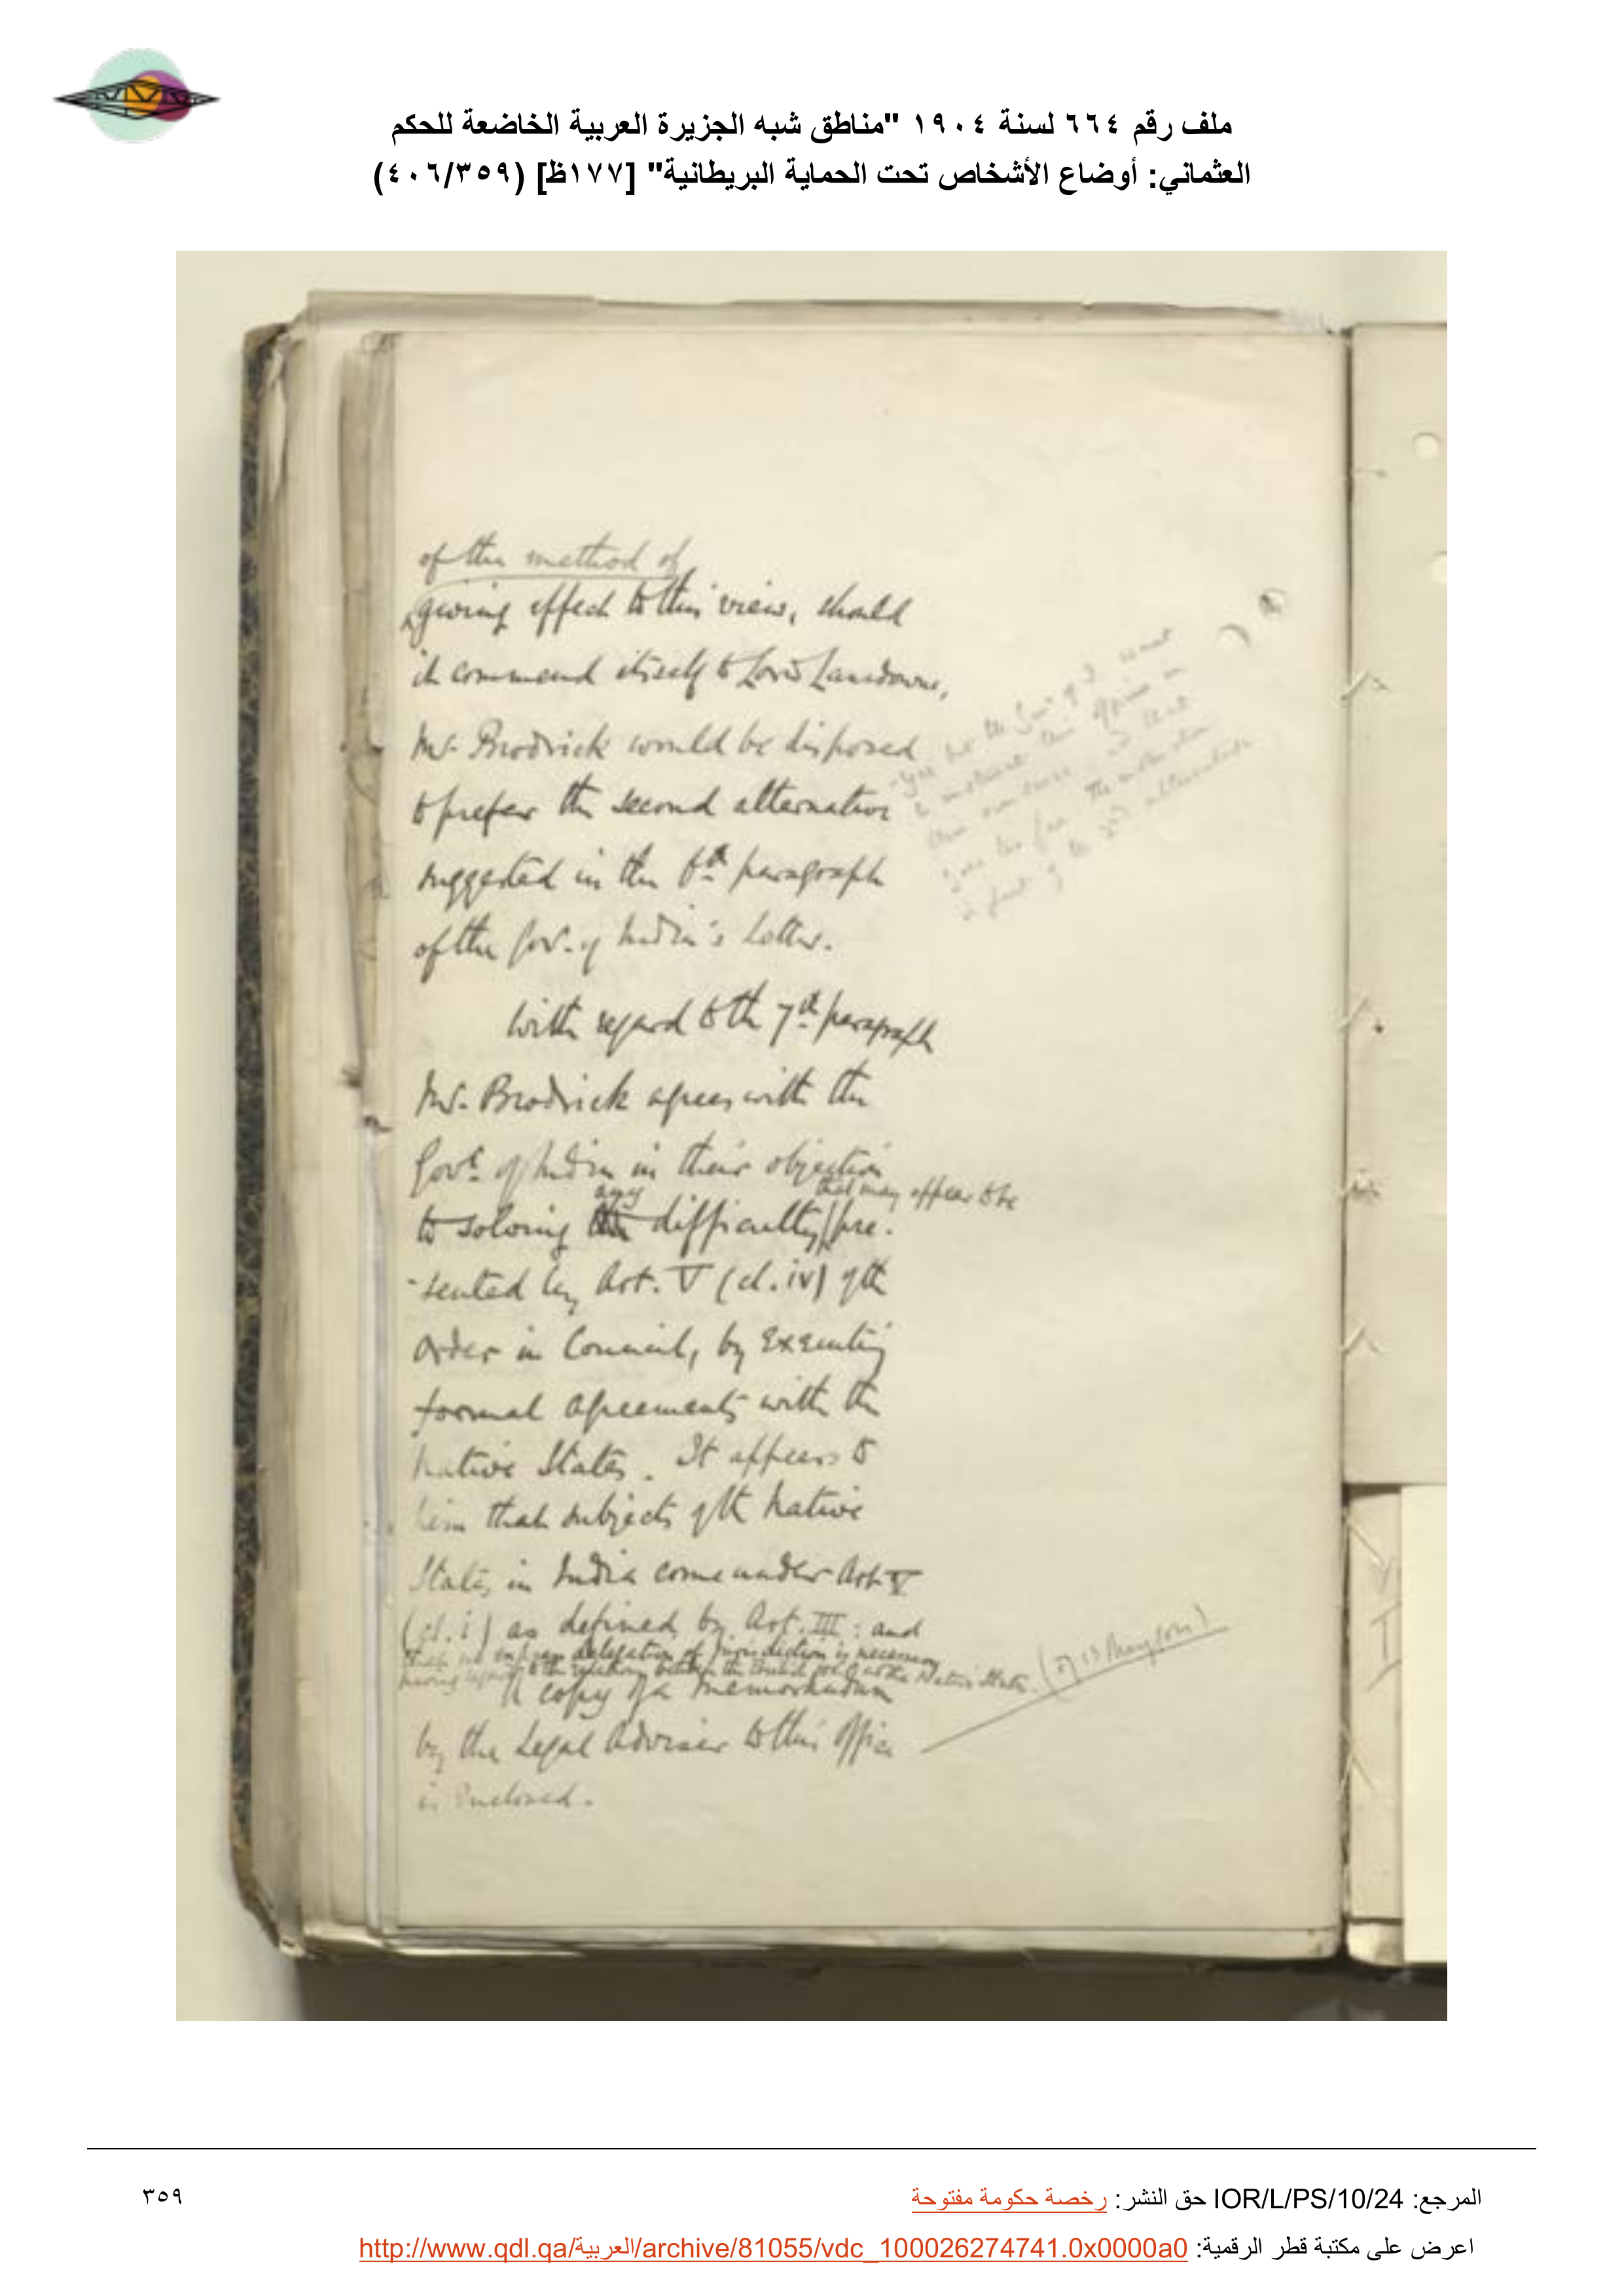 ملف رقم ٦٦٤ لسنة ١٩٠٤ "مناطق شبه الجزيرة العربية الخاضعة للحكم
العثماني: أوضاع الأشخاص تحت الحماية البريطانية" [١٧٧ظ] (٤٠٦/٣٥٩)
of the method of
giving effect to this view, should
it commend itself to Lord Lansdowne,
Mr. Brodrick would be disposed
to prefer the second alternative
suggested in the 6th paragraph
of the Gov. of India's letter.
With regard to the 7th paragraph
Mr. Brodrick agrees with the
Govt. of India in their objection
any that may appear to be
to solving difficulty pre-
-sented by Art. V (cl. iv) of the
Order in Council, by executing
formal agreements with the
Native States. It appears to
him that subjects of the Native
States in India come under Art. V
(cl. i) as defined by Art. III: and
that no express delegation of jurisdiction is necessary
having regard to the relations between the British and the Native States.
A copy of a memorandum
by the Legal Adviser to this Office
is enclosed.
المرجع: IOR/L/PS/10/24 حق النشر: رخصة حكومة مفتوحة
٣٥٩
اعرض على مكتبة قطر الرقمية: http://www.qdl.qa/العربية/archive/81055/vdc_100026274741.0x0000a0